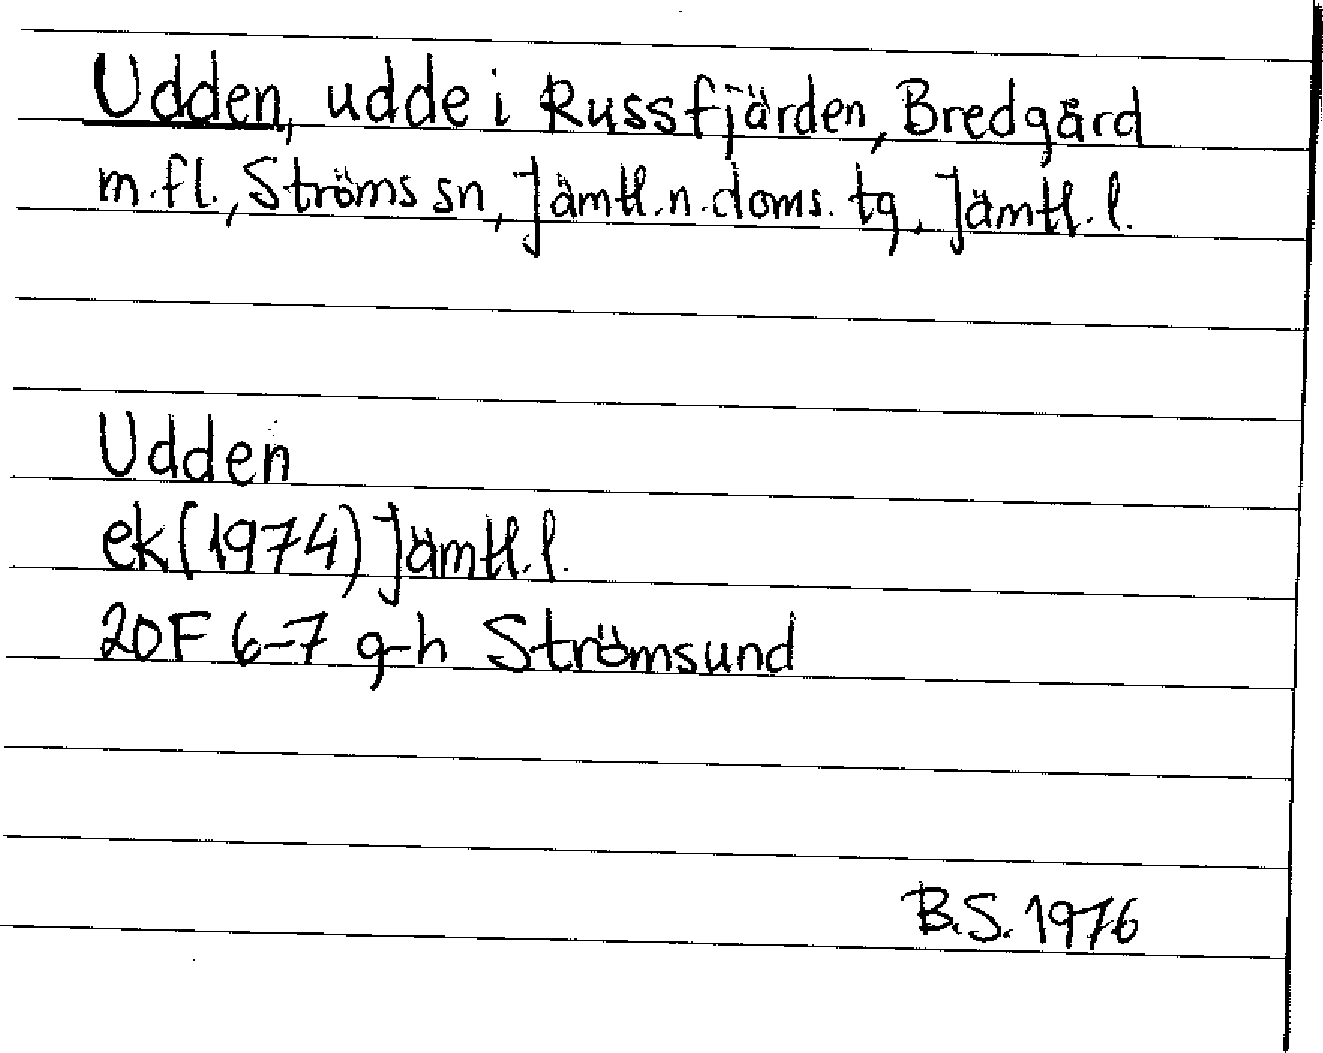 Udden, udde i Russfjärden, Bredgård
m.fl., Ströms sn, Jämtl.n.doms. tg, Jämtl.l.
Udden
ek (1974) Jämtl.l.
20F 6-7 g-h Strömsund
B.S. 1976